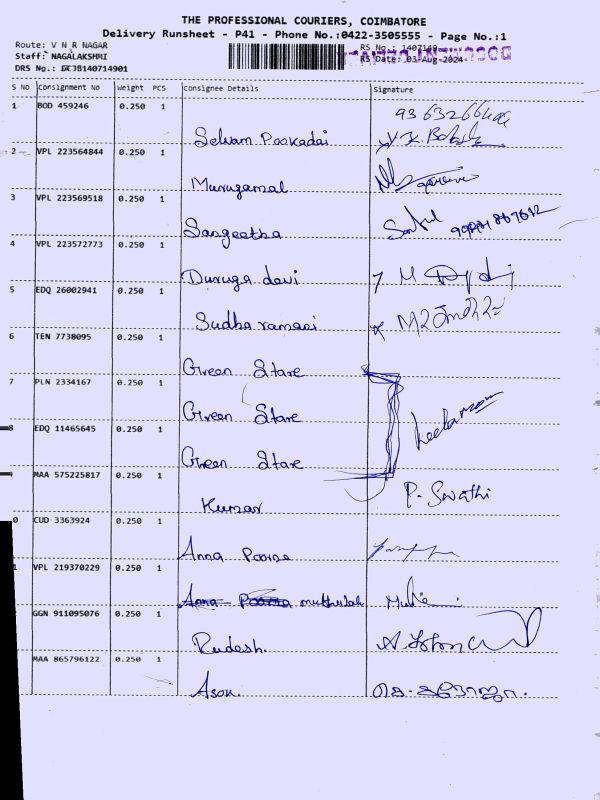 THE PROFESSIONAL COURIERS, COIMBATORE
Delivery Runsheet - P41 - Phone No.:0422-3505555 - Page No.:1
Route: V N R NAGAR
Staff: NAGALAKSHMI
RS No.: 1407149
RS Date: 03-Aug-2024
DRS No.:
S No Consignment No Weight PCS Consignee Details Signature
1 BOD 459246 0.250 1 Selvam Pookadai
2 VPL 223564844 0.250 1 Murugamal
3 VPL 223569518 0.250 1 Sangeetha
4 VPL 223572773 0.250 1 Duruga devi
5 EDQ 26002941 0.250 1 Sudha ramani
6 TEN 7738095 0.250 1 Green Stare
7 PLN 2334167 0.250 1 Green Stare
8 EDQ 11465645 0.250 1 Green Stare
MAA 575225817 0.250 1 Kumar P. Swathi
0 CUD 3363924 0.250 1 Anna Poorna
1 VPL 219370229 0.250 1 muthulak
GGN 911095076 0.250 1 Rudesh.
MAA 865796122 0.250 1 Asok.